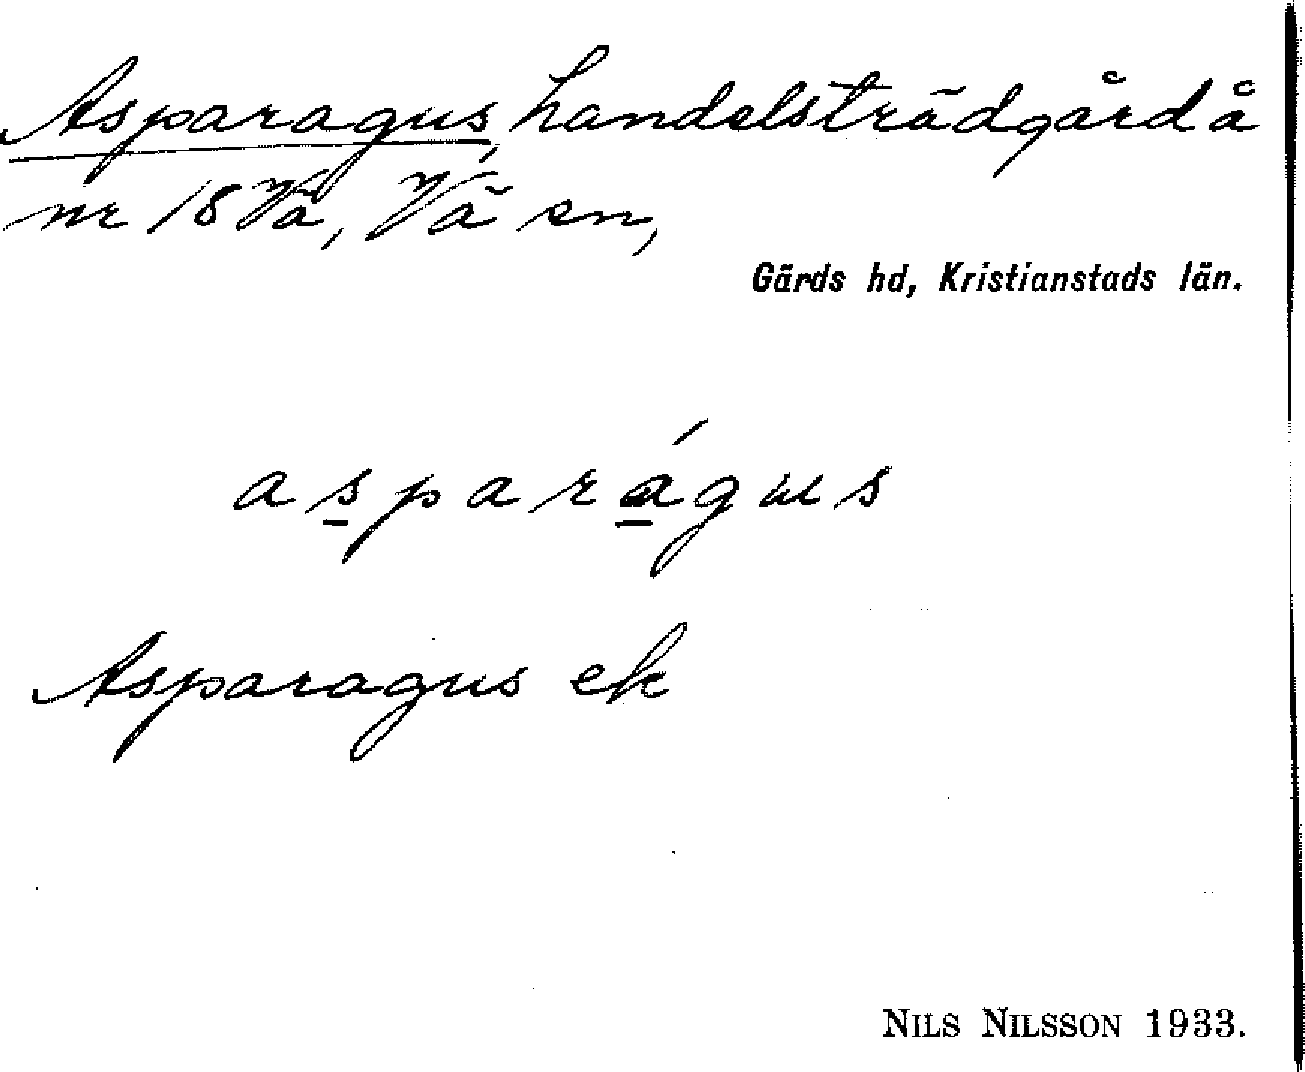 Asparagus, handelsträdgård å
nr 18 Vä, Vä sn,
Gärds hd, Kristianstads län.
asparágus
Asparagus ek
NILS NILSSON 1933.